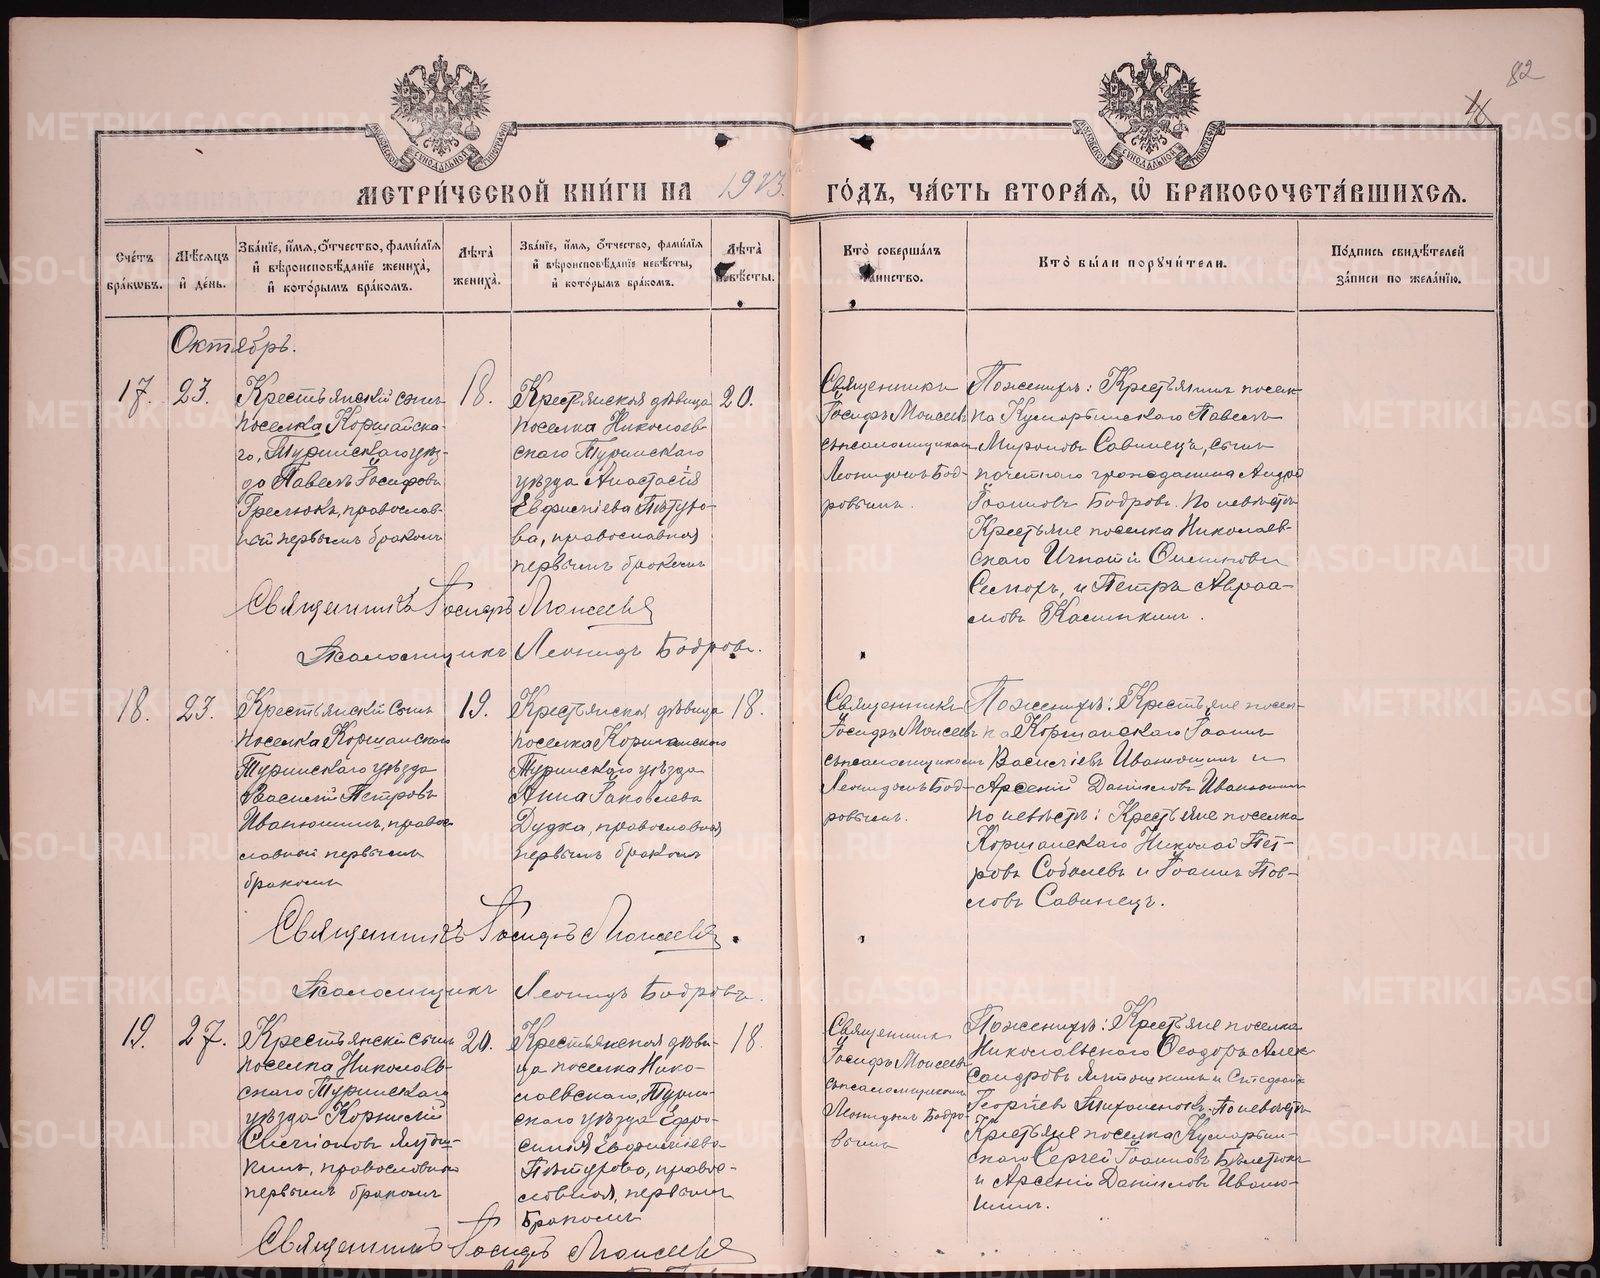 82
МОСКОВСКОЙ СѴНОДАЛЬНОЙ ТИПОГРАФІИ
МОСКОВСКОЙ СѴНОДАЛЬНОЙ ТИПОГРАФІИ
МЕТРИ́ЧЕСКОЙ КНИ́ГИ НА 1913. ГО́ДЪ, ЧА́СТЬ ВТОРА́Я, Ѡ БРАКОСОЧЕТА́ВШИХСЯ.
Сче́тъ бра́кѡвъ.
Мѣ́сяцъ и҆ де́нь.
Зва́нїе, и҆́мя, ѻ҆́тчество, фами́лїя и҆ вѣроисповѣ́данїе жениха̀, и҆ кото́рымъ бра́комъ.
Лѣта̀ жениха̀.
Зва́нїе, и҆́мя, ѻ҆́тчество, фами́лїя и҆ вѣроисповѣ́данїе невѣ́сты, и҆ кото́рымъ бра́комъ.
Лѣта̀ невѣ́сты.
Кто̀ соверша́лъ таинство.
Кто̀ бы́ли порꙋчи́тели.
По́дпись свидѣ́телей за́писи по жела́нїю.
Октябрь.
17.
23.
Крестьянскій сынъ
поселка Коршайска-
го, Туринскаго уѣз-
да Павелъ Іосифовъ
Гресюкъ, православ-
ный первымъ бракомъ
18.
Крестьянская дѣвица
поселка Николаев-
скаго Туринскаго
уѣзда Анастасія
Евфиміева Пѣтухо-
ва, православная
первымъ бракомъ
20.
Священникъ
Іосифъ Моисеевъ
съ псаломщикомъ
Леонидомъ Бод-
ровымъ.
По женихѣ: Крестьянинъ посел-
ка Кумарьинскаго Павелъ
Мироновъ Савинецъ, сынъ
почетнаго гражданина Андрей
Іоанновъ Бодровъ. По невѣстѣ
Крестьяне поселка Николаев-
скаго Игнатій
и Петръ Авраа-
мовъ Касьткинъ.
Священникъ Іосифъ Моисеевъ
Псаломщикъ Леонидъ Бодровъ.
18.
23.
Крестьянскій сынъ
поселка Коршайскаго
Туринскаго уѣзда
Василій Петровъ
Иванюшинъ, право-
славный первымъ
бракомъ
19.
Крестьянская дѣвица
поселка Коршайскаго
Туринскаго уѣзда
Анна Іаковлева
Дудка, православная
первымъ бракомъ
18.
Священникъ
Іосифъ Моисеевъ
съ псаломщикомъ
Леонидомъ Бод-
ровымъ.
По женихѣ: Крестьяне посел-
ка Коршайскаго Іоаннъ
Васильевъ Иванюшинъ и
Арсеній Даниловъ Иванюшинъ
По невѣстѣ: Крестьяне поселка
Коршайскаго Николай Пет-
ровъ Соболевъ и Іоаннъ Пав-
ловъ Савинецъ.
Священникъ Іосифъ Моисеевъ
Псаломщикъ Леонидъ Бодровъ.
19.
27.
Крестьянскій сынъ
поселка Николаев-
скаго Туринскаго
уѣзда Корнилій
Симеоновъ
православный
первымъ бракомъ
20.
Крестьянская дѣви-
ца поселка Нико-
лаевскаго, Турин-
скаго уѣзда Евфро-
синія Евфиміева
Пѣтухова, право-
славная, первымъ
бракомъ
18.
Священникъ
Іосифъ Моисеевъ
съ псаломщикомъ
Леонидомъ Бодро-
вымъ
По женихѣ: Крестьяне поселка
Николаевскаго Ѳеодоръ Алек-
сандровъ и Стефанъ
Георгіевъ По невѣстѣ
Крестьяне поселка Кумарьин-
скаго Сергей Іоанновъ
и Арсеній Даниловъ Иваню-
шинъ.
Священникъ Іосифъ Моисеевъ
METRIKI.GASO-URAL.RU